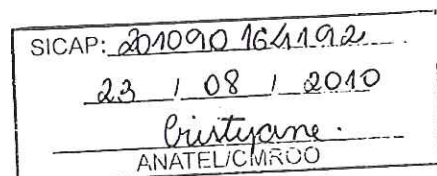 SICAP: 201090 164192
23 / 08 / 2010
Cristyane.
ANATEL/CMROO